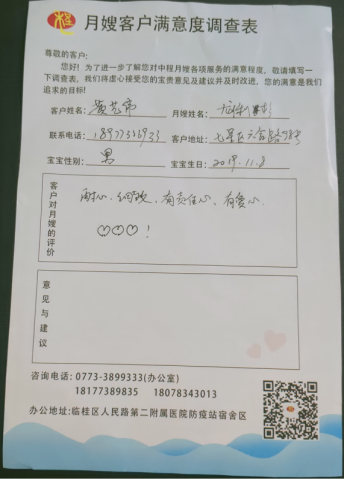 月嫂客户满意度调查表
尊敬的客户:
您好!为了进一步了解您对中程月嫂各项服务的满意程度,敬请填写一
下调查表,我们将虚心接受您的宝贵意见及建议并及时改进,您的满意是我们
追求的目标!
客户姓名: 黄艺 月嫂姓名:
联系电话: 客户地址: 七星区六合路98号
宝宝性别: 男 宝宝生日: 2019.11.8
客户对月嫂的评价
耐心、细致、有责任心、有爱心
♡♡♡!
意见与建议
咨询电话:0773-3899333(办公室)
18177389835 18078343013
办公地址:临桂区人民路第二附属医院防疫站宿舍区